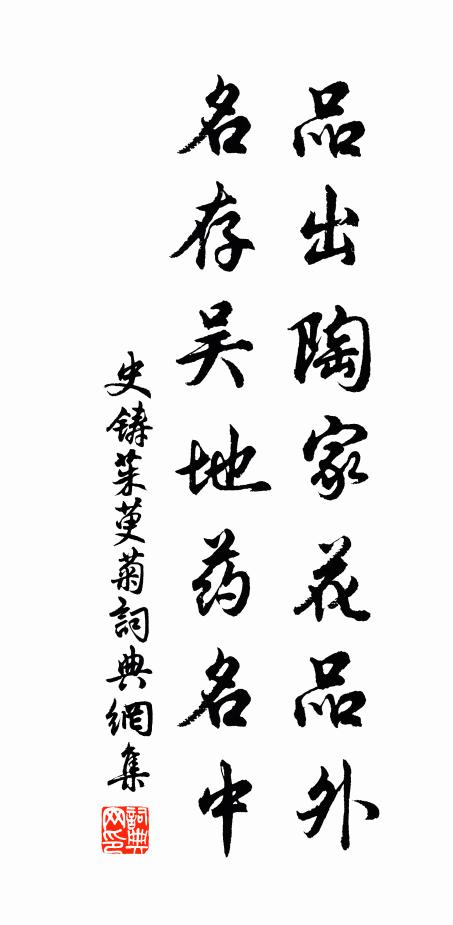 品出陶家花品外
名存吴地药名中
史鑄茱萸菊詞典網集
詞典网印